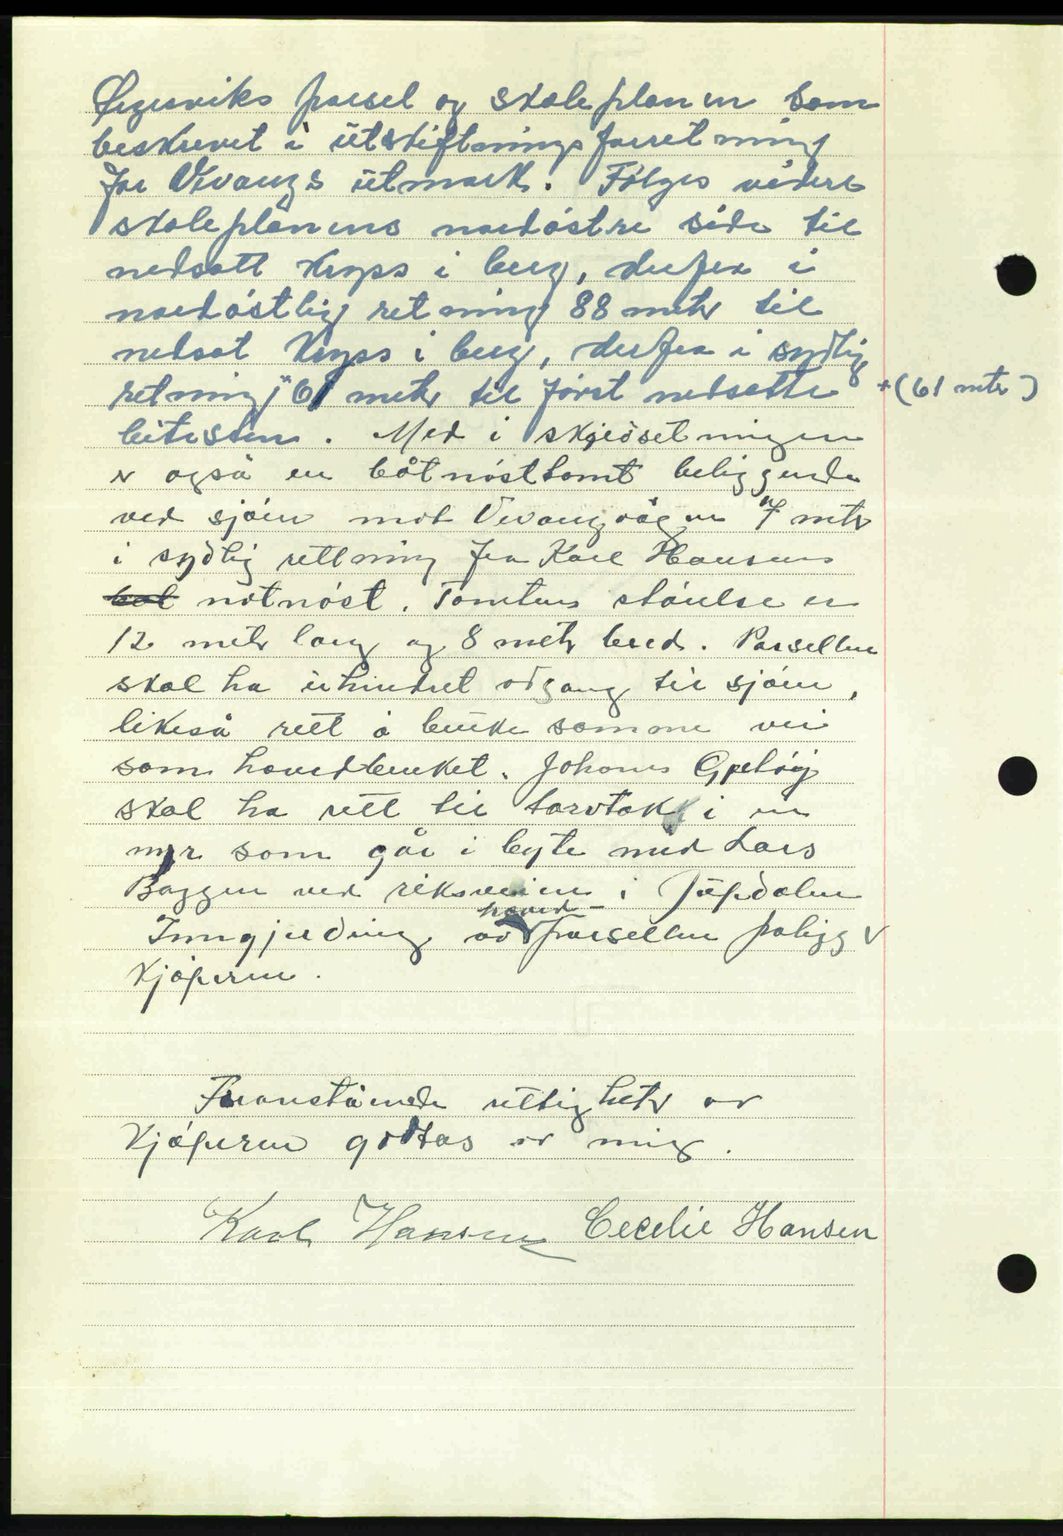 parsel og skoleplanen som
beskrevet i utskiftningsforretning
for Vevangs utmark. Følges videre
skoleplanens nordøstre side til
nedsatt kryss i berg, derfra i
nordøstlig retning 88 meter til
nedsat kryss i berg, derfra i sydlig
retning 61 meter til først nedsatte +(61 mtr)
bitesten. Med i skjødsetningen
er også en båtnøsttomt beliggende
ved sjøen mot Vevangvågen 7 mtr
i sydlig rettning fra Karl Hansens
bot notnøst. Tomtens størelse er
12 metr lang og 8 metr bred. Parsellen
skal ha uhindret adgang til sjøen,
likeså rett å bruke samme vei
som hovedbruket. Johans
skal ha rett til torvtak i en
myr som går i byte med Lars
Baggen ved riksveien i Jupdalen
hoved-
Inngjerding av parsellen påligger
kjøperen.
Foranstående rettigheter av
kjøperen godtas av mig.
Karl Hansen Cecelie Hansen